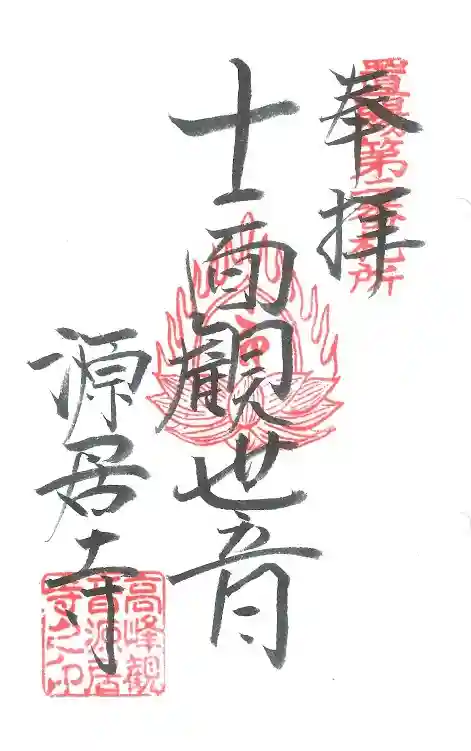 置賜第二番札所
奉拝
十一面觀世音
源居寺
高峰觀
音源居
寺之印